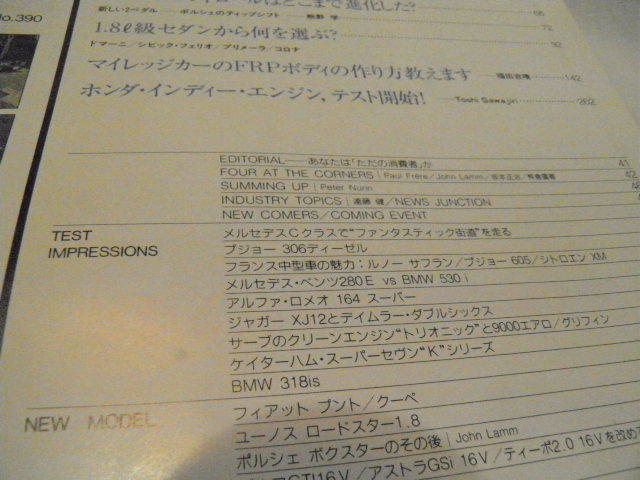 No.390
はどこまで進化した?
新しい2ペダル ポルシェのティップシフト 熊野 学
68
72
1.8ℓ級セダンから何を選ぶ?
ドマーニ/シビック・フェリオ/プリメーラ/コロナ
92
マイレッジカーのFRPボディの作り方教えます 142
ホンダ・インディー・エンジン,テスト開始! Toshi Sawajiri 202
EDITORIAL——あなたは「ただの消費者」か 41
FOUR AT THE CORNERS | Paul Frère/John Lamm/ 42
SUMMING UP | Peter Nunn
INDUSTRY TOPICS | 遠藤 健/NEWS JUNCTION
NEW COMERS/COMING EVENT
TEST IMPRESSIONS
メルセデスCクラスで“ファンタスティック街道”を走る
プジョー 306ディーゼル
フランス中型車の魅力:ルノー サフラン/プジョー 605/シトロエン XM
メルセデス・ベンツ280E vs BMW 530i
アルファ・ロメオ 164 スーパー
ジャガー XJ12とデイムラー・ダブルシックス
サーブのクリーンエンジン“トリオニック”と9000エアロ/グリフィン
ケイターハム・スーパーセヴン“K”シリーズ
BMW 318is
NEW MODEL
フィアット プント/クーペ
ユーノス ロードスター1.8
ポルシェ ボクスターのその後 | John Lamm
GTI16V/アストラGSi 16V/ティーポ2.0 16Vを改め